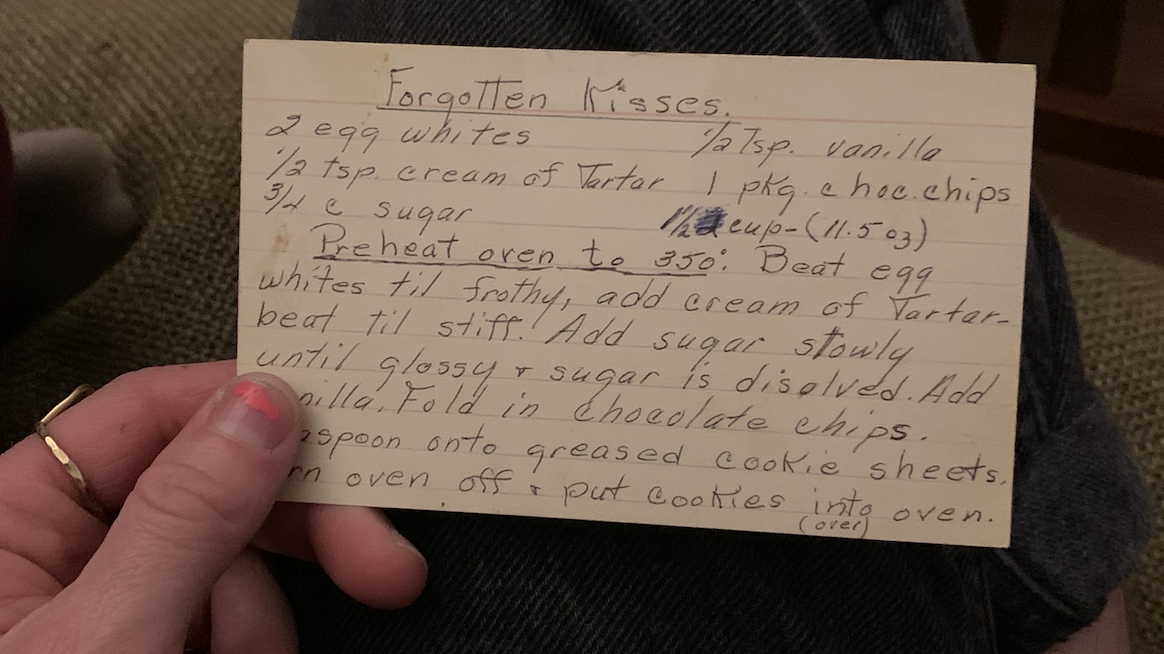 Forgotten Kisses.
2 egg whites
1/2 Tsp. vanilla
1/2 tsp. cream of Tartar
1 pkg. choc. chips
3/4 c sugar
1 1/2 cup - (11.5 oz)
Preheat oven to 350°. Beat egg
whites til frothy, add cream of Tartar -
beat til stiff. Add sugar slowly
until glossy & sugar is disolved. Add
nilla. Fold in chocolate chips.
aspoon onto greased cookie sheets.
rn oven off & put cookies into oven.
(over)